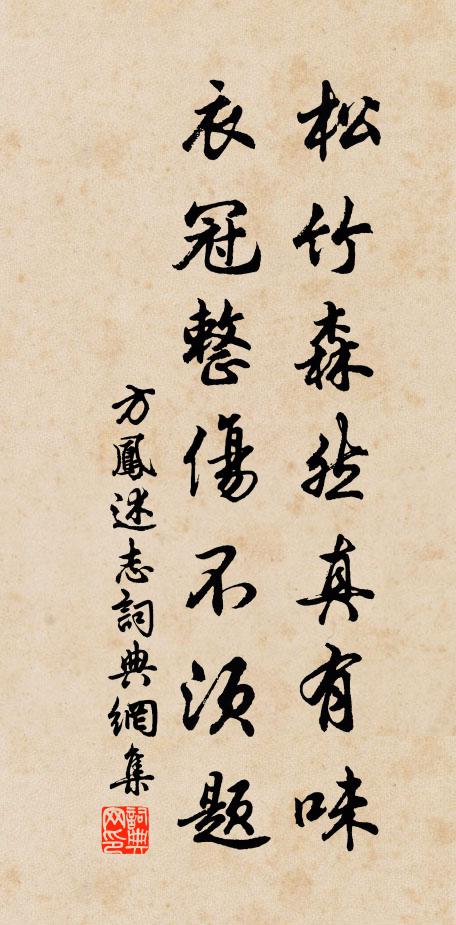 松竹森然真有味
衣冠整傷不須題
方鳳述志詞典網集
詞典网印